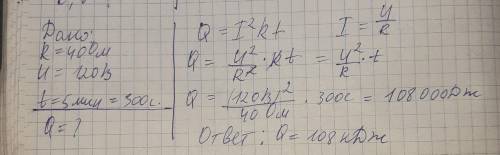 Дано:
R = 40 Ом
U = 120В
t = 5 мин = 300с.
Q = ?
Q = I²Rt I = U/R
Q = U²/R² · Rt = U²/R · t
Q = (120В)²/40 Ом · 300с = 108 000 Дж
Ответ: Q = 108 кДж